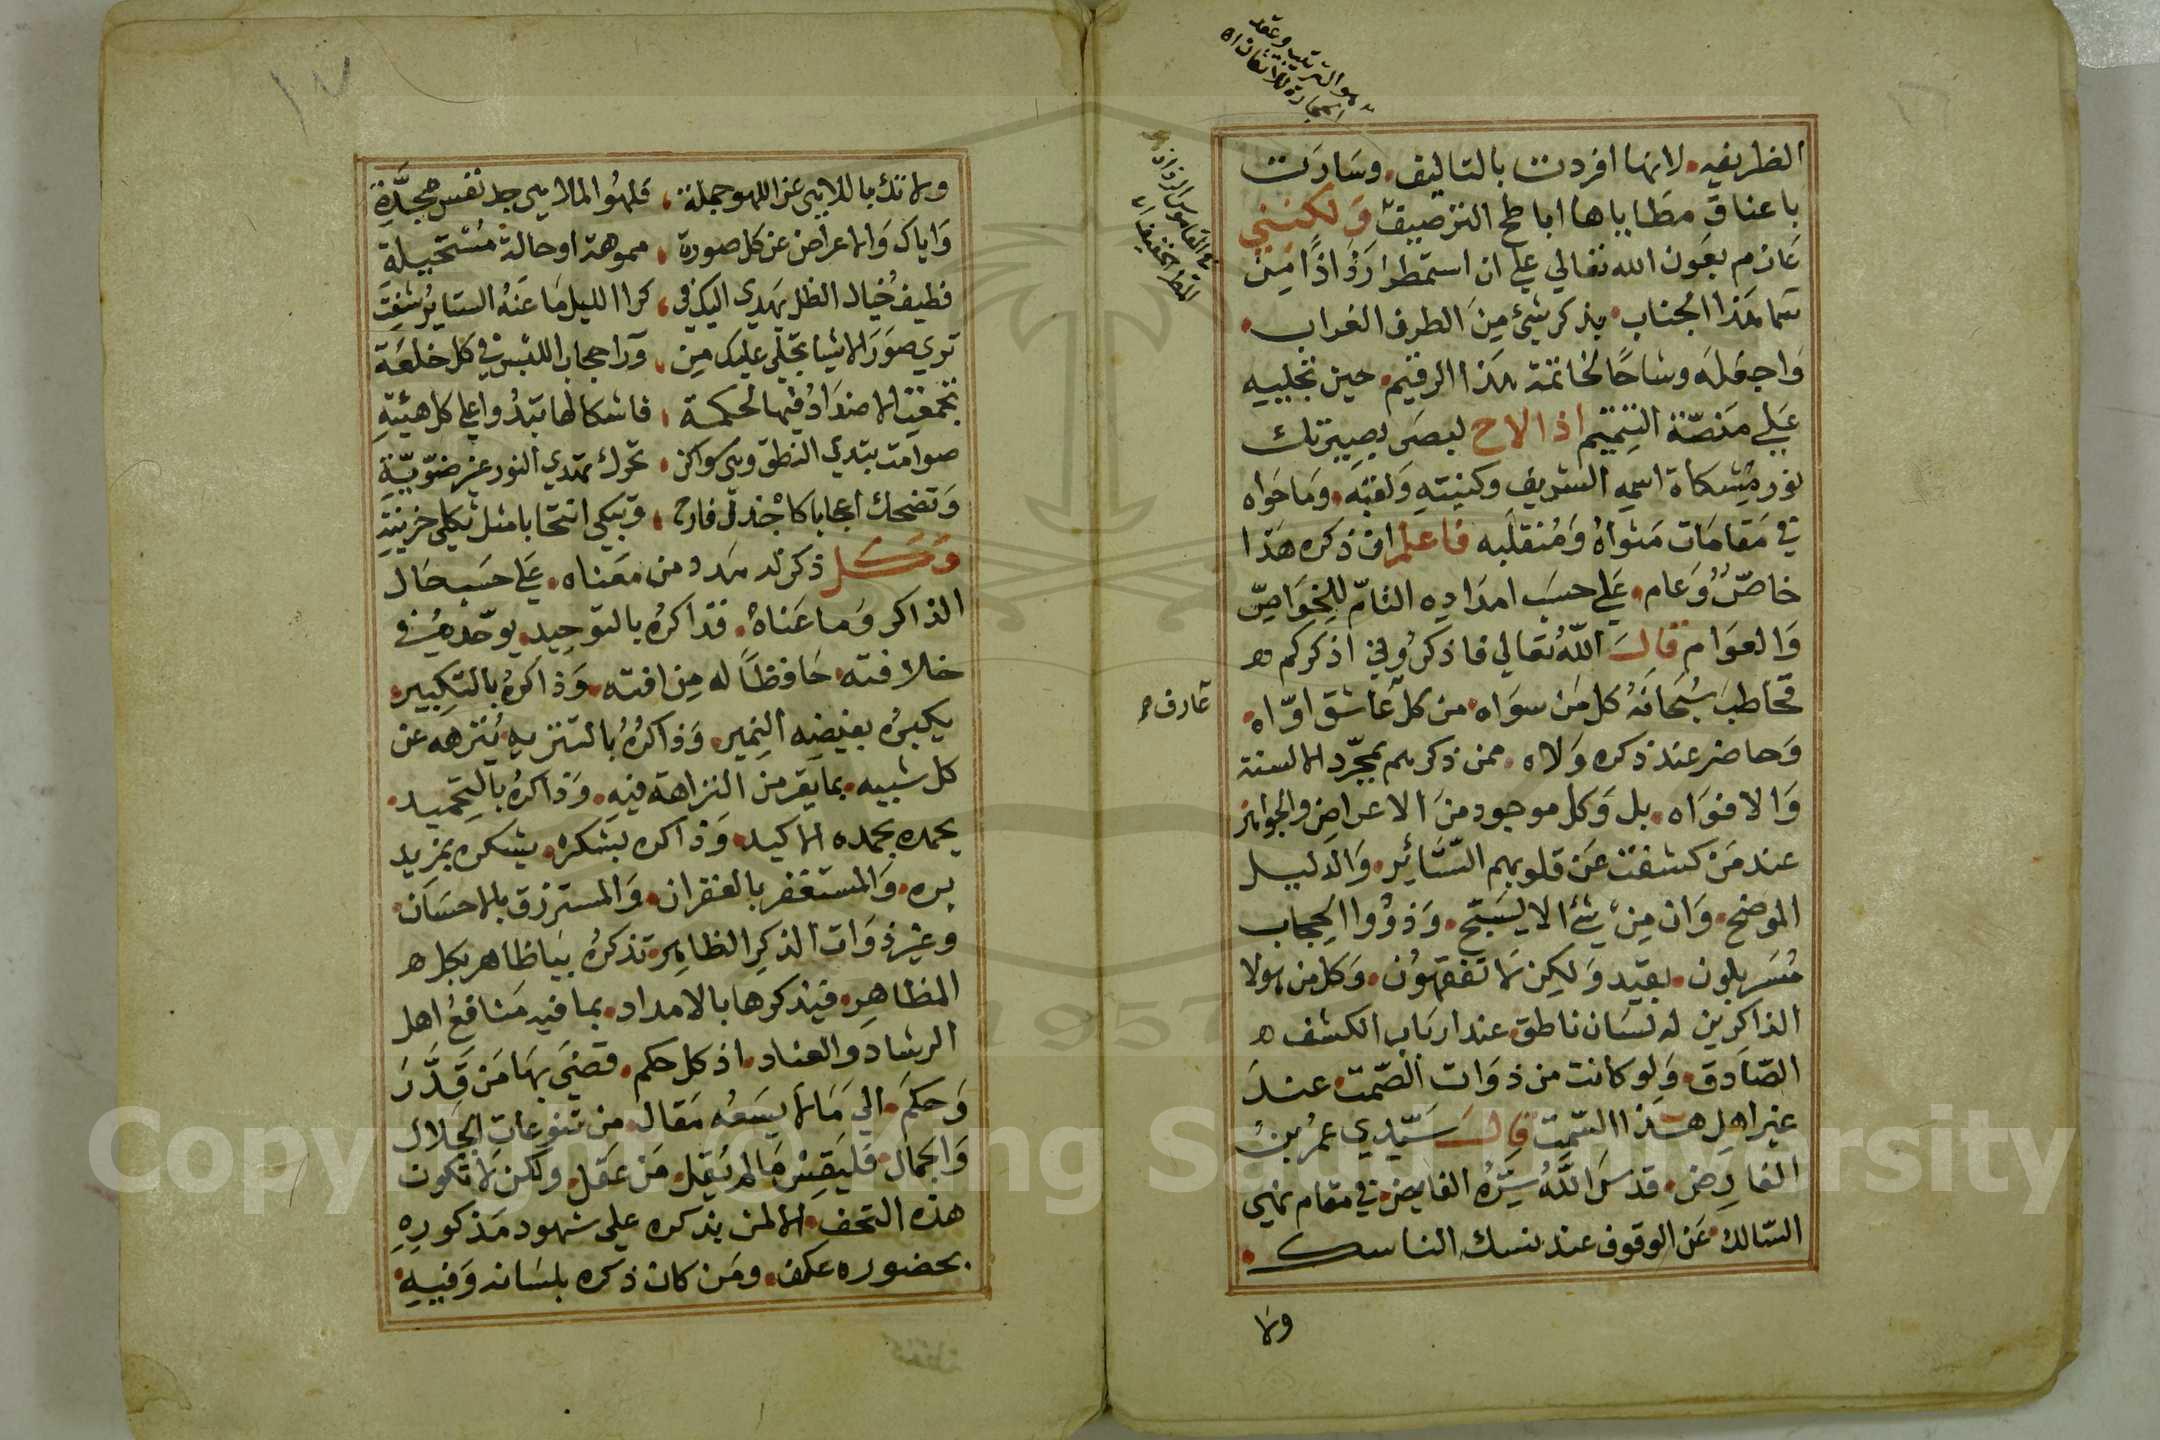 الظريفه لانها افردت بالتاليف وسارت
باعناق مطاياها اباطح الترصيف ولكنني
عازم بعون الله تعالي علي ان استمطر رذاذا من
سما هذا الجناب بذكر شئ من الطرف الغراب
واجعله وشاحا لخاتمة هذا الرقيم حين تجليه
علي منصة التتميم اذا لاح لبصر بصيرتك
نور مشكاة اسمه الشريف وكنيته ولقبه وما حواه
في مقامات مثواه ومنقلبه فاعلم ان ذكره هذا
خاص وعام علي حسب امداده التام للخواص
والعوام قال الله تعالي فاذكروني اذكركم
فخاطب سبحانه كل من سواه من كل عاشق اواه
وحاضر عند ذكره ولاه ممن ذكرهم بمجرد الالسنة
والافواه بل وكل موجود من الاعراض والجواهر
عند من كشفت عن قلوبهم الستائر والدليل
الموضح وان من شئ الا يسبح وذووا الحجاب
مسربلون بقيد ولكن لا تفقهون وكل من هولا
الذاكرين له لسان ناطق عند ارباب الكشف
الصادق ولو كانت من ذوات الصمت عند
غير اهل هذا السمت قال سيدي عمر بن
الفارض قدس الله سره الفايض في مقام نهي
السالك عن الوقوف عند نسك الناسك
ولا
عارف
ولا تك باللاهي عن اللهو جملة فلهو الملاهي جد نفس مجدة
واياك والاعراض عن كل صورة مموهة او حالة مستحيلة
فطيف خيال الظل يهدي اليك في كرا الليل ما عنه الستاير شفت
تري صور الاشيا تجلي عليك من ورا حجاب اللبس في كل خلعة
تجمعت الاضداد فيها لحكمة فاشكالها تبدوا علي كل هيئة
صوامت تبدي النطق وهي سواكن تحرك تهدي النور غير ضوية
وتضحك اعجابا كاجذل فارح وتبكي انتحابا مثل ثكلي حزينة
وكل ذكر له مدد من معناه علي حسب حال
الذاكر وما عناه فذاكره بالتوحيد يوحده في
خلافته حافظا له من افته وذاكره بالتكبير
يكبره بفيضه النمير وذاكره بالتنزيه ينزهه عن
كل شبيه بما يقر من النزاهة فيه وذاكره بالتحميد
يحمده بحمده الاكيد وذاكره بشكره يشكره بمزيد
بره والمستغفر بالغفران والمسترزق بالاحسان
وغير ذوات الذكر الظاهر تذكره بيا ظاهر بكل
المظاهر فيذكرها بالامداد بما فيه منافع اهل
الرشاد والعناد اذ كل حكم قضي بها من قدر
وحكم الي ما لا يسعه مقال من تنوعات الجلال
والجمال فليقس ما لم يقل من عقل ولكن لا تكون
هذه التحف الا لمن بذكره علي شهود مذكوره
بحضوره عكف ومن كان ذكره بلسانه وفيه
١٧
Copyright © King Saud University
1957